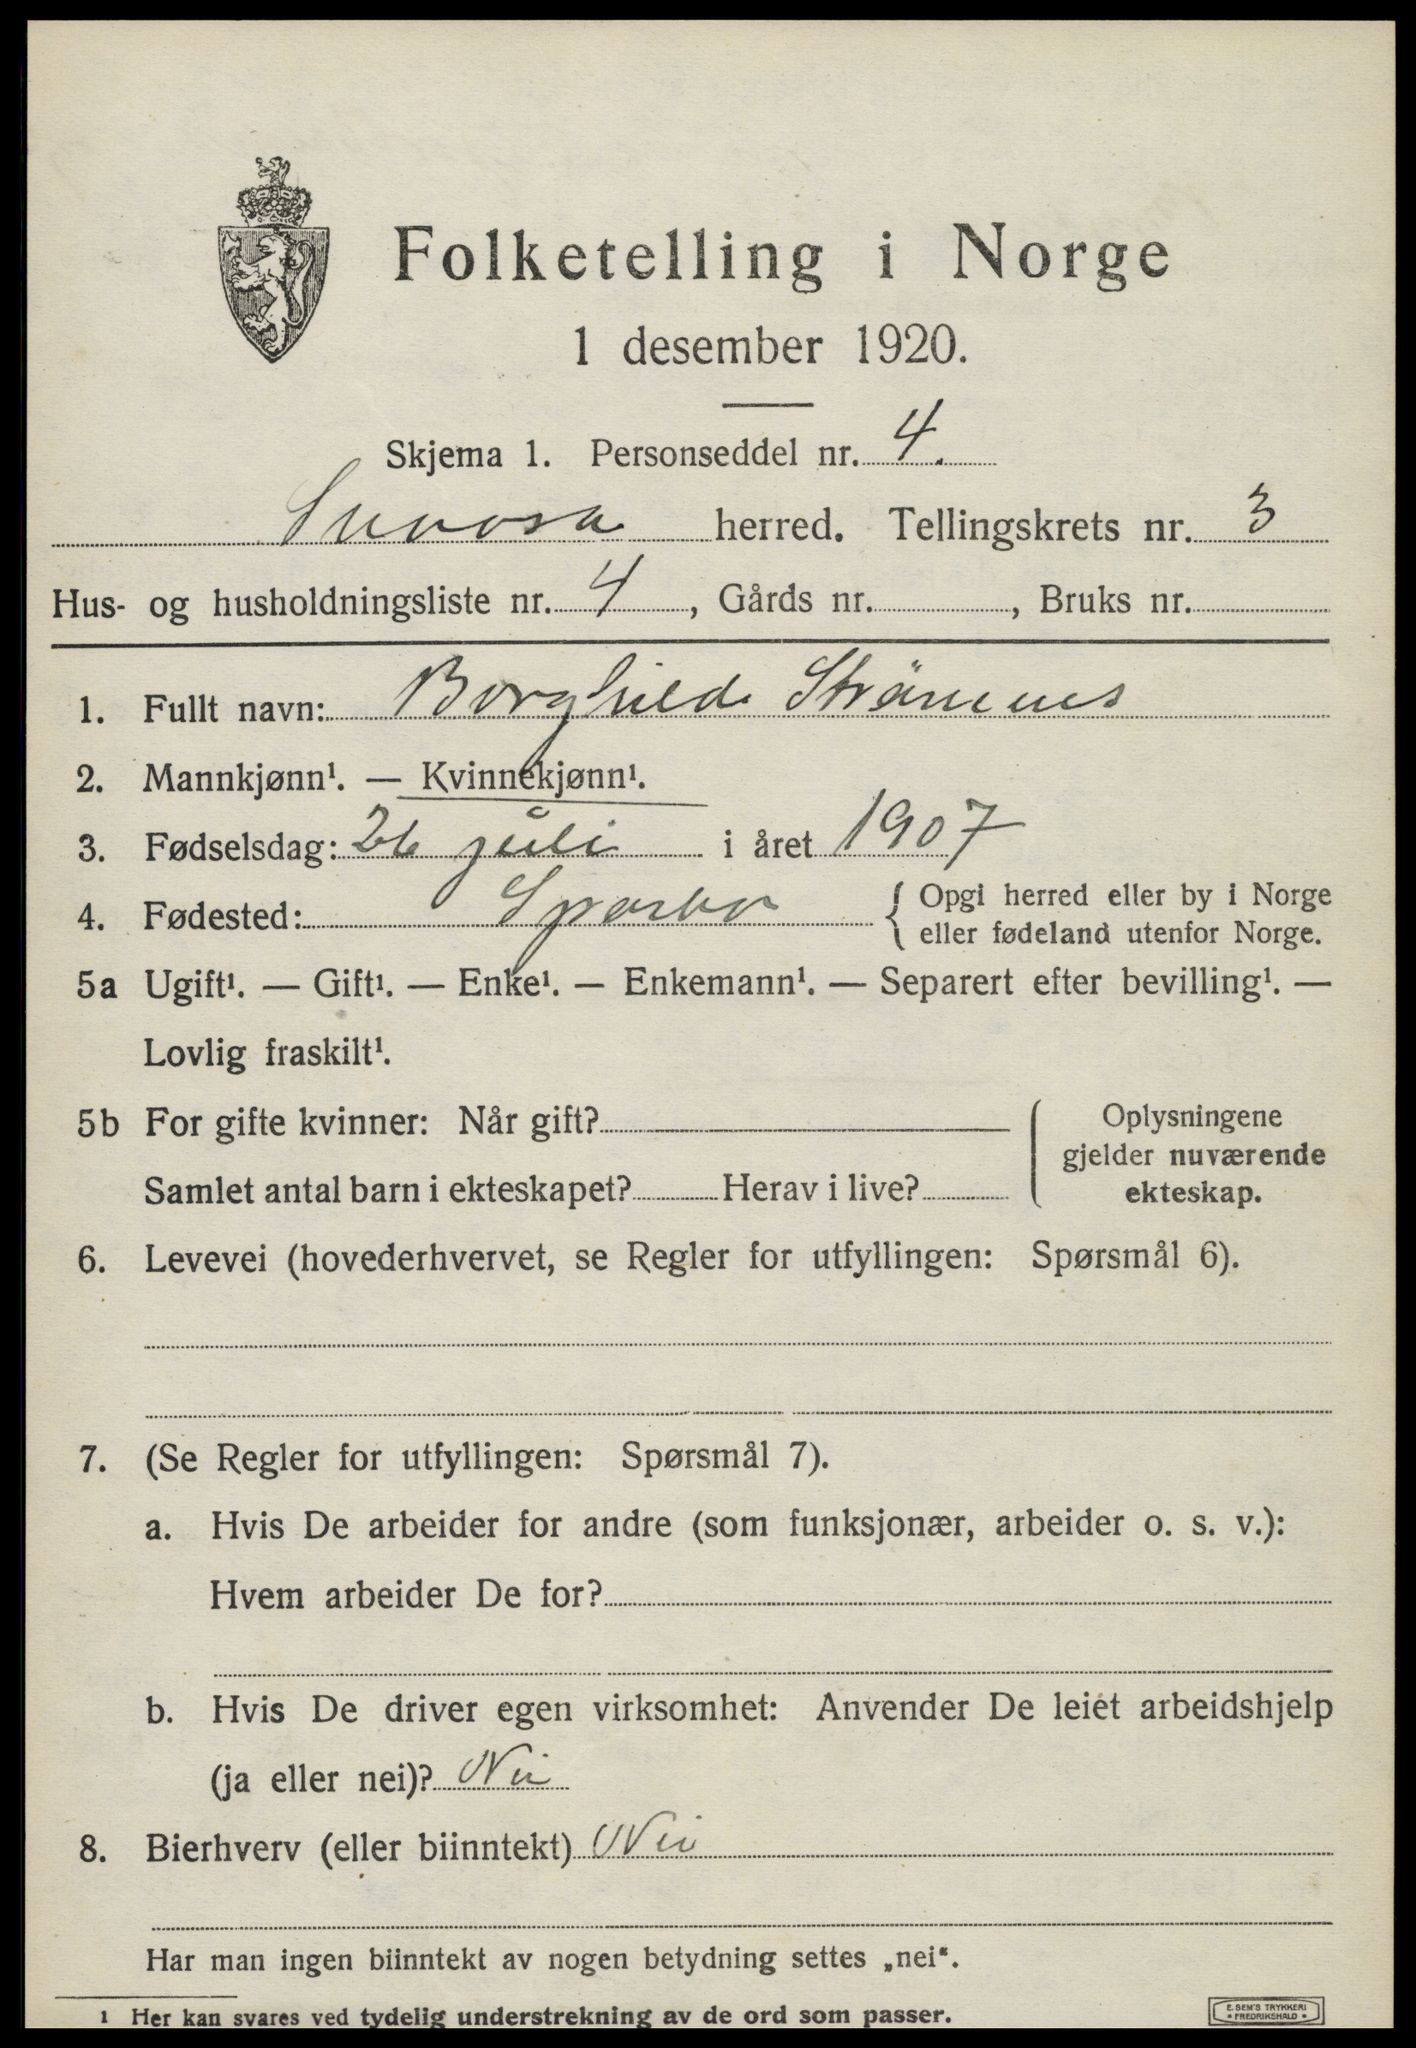 Folketelling i Norge
1 desember 1920.
Skjema 1. Personseddel nr. 4.
Snaasa herred. Tellingskrets nr. 3
Hus- og husholdningsliste nr. 4, Gårds nr. , Bruks nr.
1. Fullt navn: Borghild Strömnes
2. Mannkjønn¹. — Kvinnekjønn¹.
3. Fødselsdag: 26 juli i året 1907
4. Fødested: Sparbu { Opgi herred eller by i Norge
eller fødeland utenfor Norge.
5a Ugift¹. — Gift¹. — Enke¹. — Enkemann¹. — Separert efter bevilling¹. —
Lovlig fraskilt¹.
5b For gifte kvinner: Når gift?
Samlet antal barn i ekteskapet? Herav i live?
Oplysningene
gjelder nuværende
ekteskap.
6. Levevei (hovederhvervet, se Regler for utfyllingen: Spørsmål 6).
7. (Se Regler for utfyllingen: Spørsmål 7).
a. Hvis De arbeider for andre (som funksjonær, arbeider o. s. v.):
Hvem arbeider De for?
b. Hvis De driver egen virksomhet: Anvender De leiet arbeidshjelp
(ja eller nei)? Nei
8. Bierhverv (eller biinntekt) Nei
Har man ingen biinntekt av nogen betydning settes „nei“.
1 Her kan svares ved tydelig understrekning av de ord som passer.
E. SEM'S TRYKKERI
• FREDRIKSHALD •